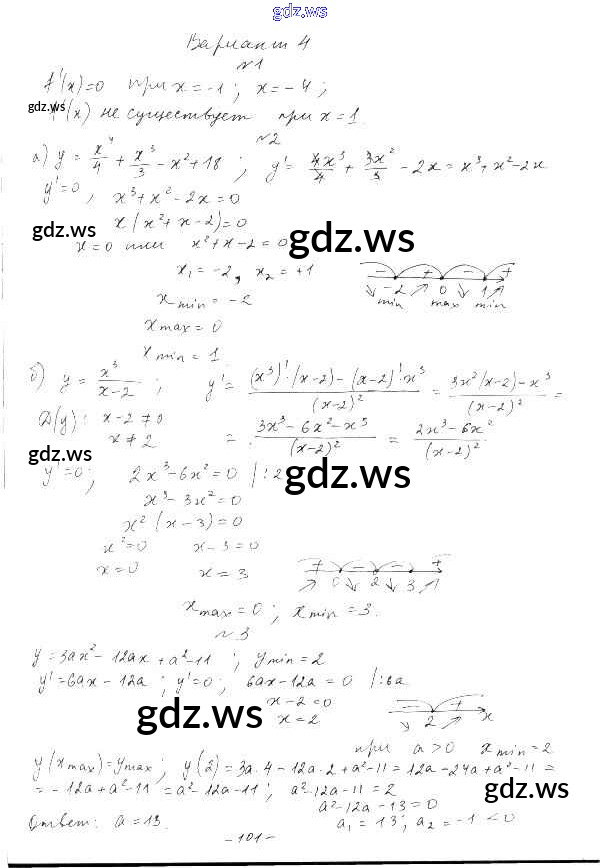 gdz.ws
Вариант 4
№1
f'(x)=0 при x=-1; x=-4;
gdz.ws
f'(x) не существует при x=1.
№2
а) y = x⁴/4 + x³/3 - x² + 18; y' = 4x³/4 + 3x²/3 - 2x = x³ + x² - 2x
y'=0, x³ + x² - 2x = 0
x(x² + x - 2) = 0
gdz.ws
x=0 или x² + x - 2 = 0
gdz.ws
x₁ = -2, x₂ = +1
- + - +
-2 0 1
min max min
x min = -2
x max = 0
x min = 1
б) y = x³/(x-2); y' = ((x³)'(x-2) - (x-2)'·x³)/(x-2)² = (3x²(x-2) - x³)/(x-2)² =
D(y): x-2≠0
x≠2
= (3x³ - 6x² - x³)/(x-2)² = (2x³ - 6x²)/(x-2)²
gdz.ws
y'=0; 2x³ - 6x² = 0 |:2
gdz.ws
x³ - 3x² = 0
x²(x-3) = 0
x²=0 x-3=0
x=0 x=3
+ - - +
0 2 3
x max = 0; x min = 3.
№3
y = 3ax² - 12ax + a² - 11; y min = 2
y' = 6ax - 12a; y'=0; 6ax - 12a = 0 |:6a
x-2=0
x=2
- +
2 x
gdz.ws
при a>0 x min = 2
y(x max) = y max; y(2) = 3a·4 - 12a·2 + a² - 11 = 12a - 24a + a² - 11 =
= -12a + a² - 11 = a² - 12a - 11; a² - 12a - 11 = 2
gdz.ws
a² - 12a - 13 = 0
Ответ: a=13.
a₁ = 13; a₂ = -1 < 0
- 101 -